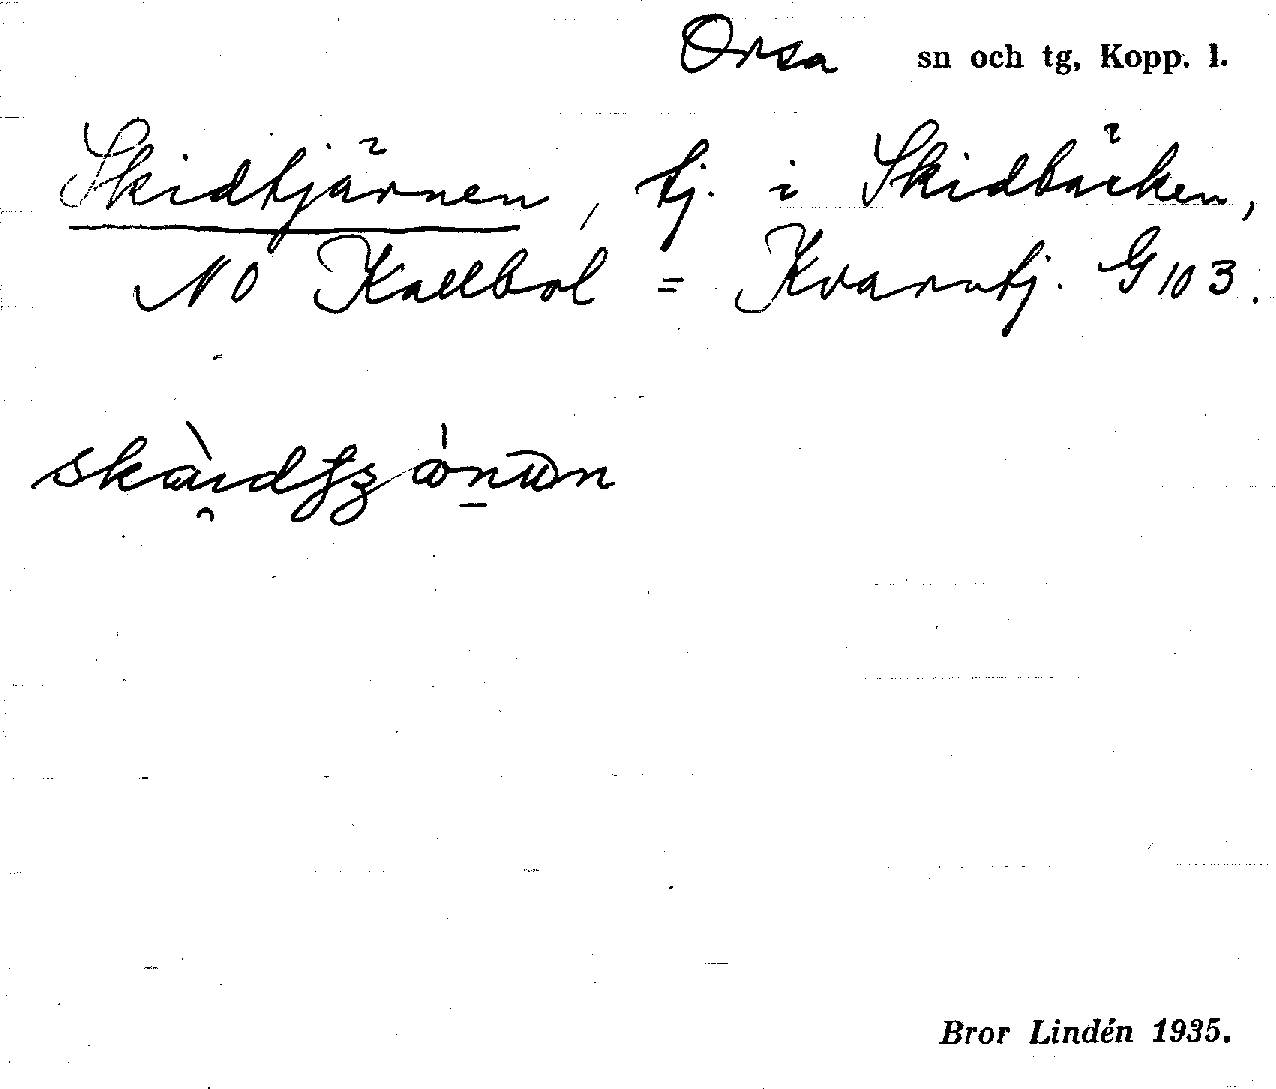 Orsa sn och tg, Kopp. l.
Skidtjärnen, tj. i Skidbäcken,
NO Kallbol = Kvarntj. G 103.
Bror Lindén 1935.